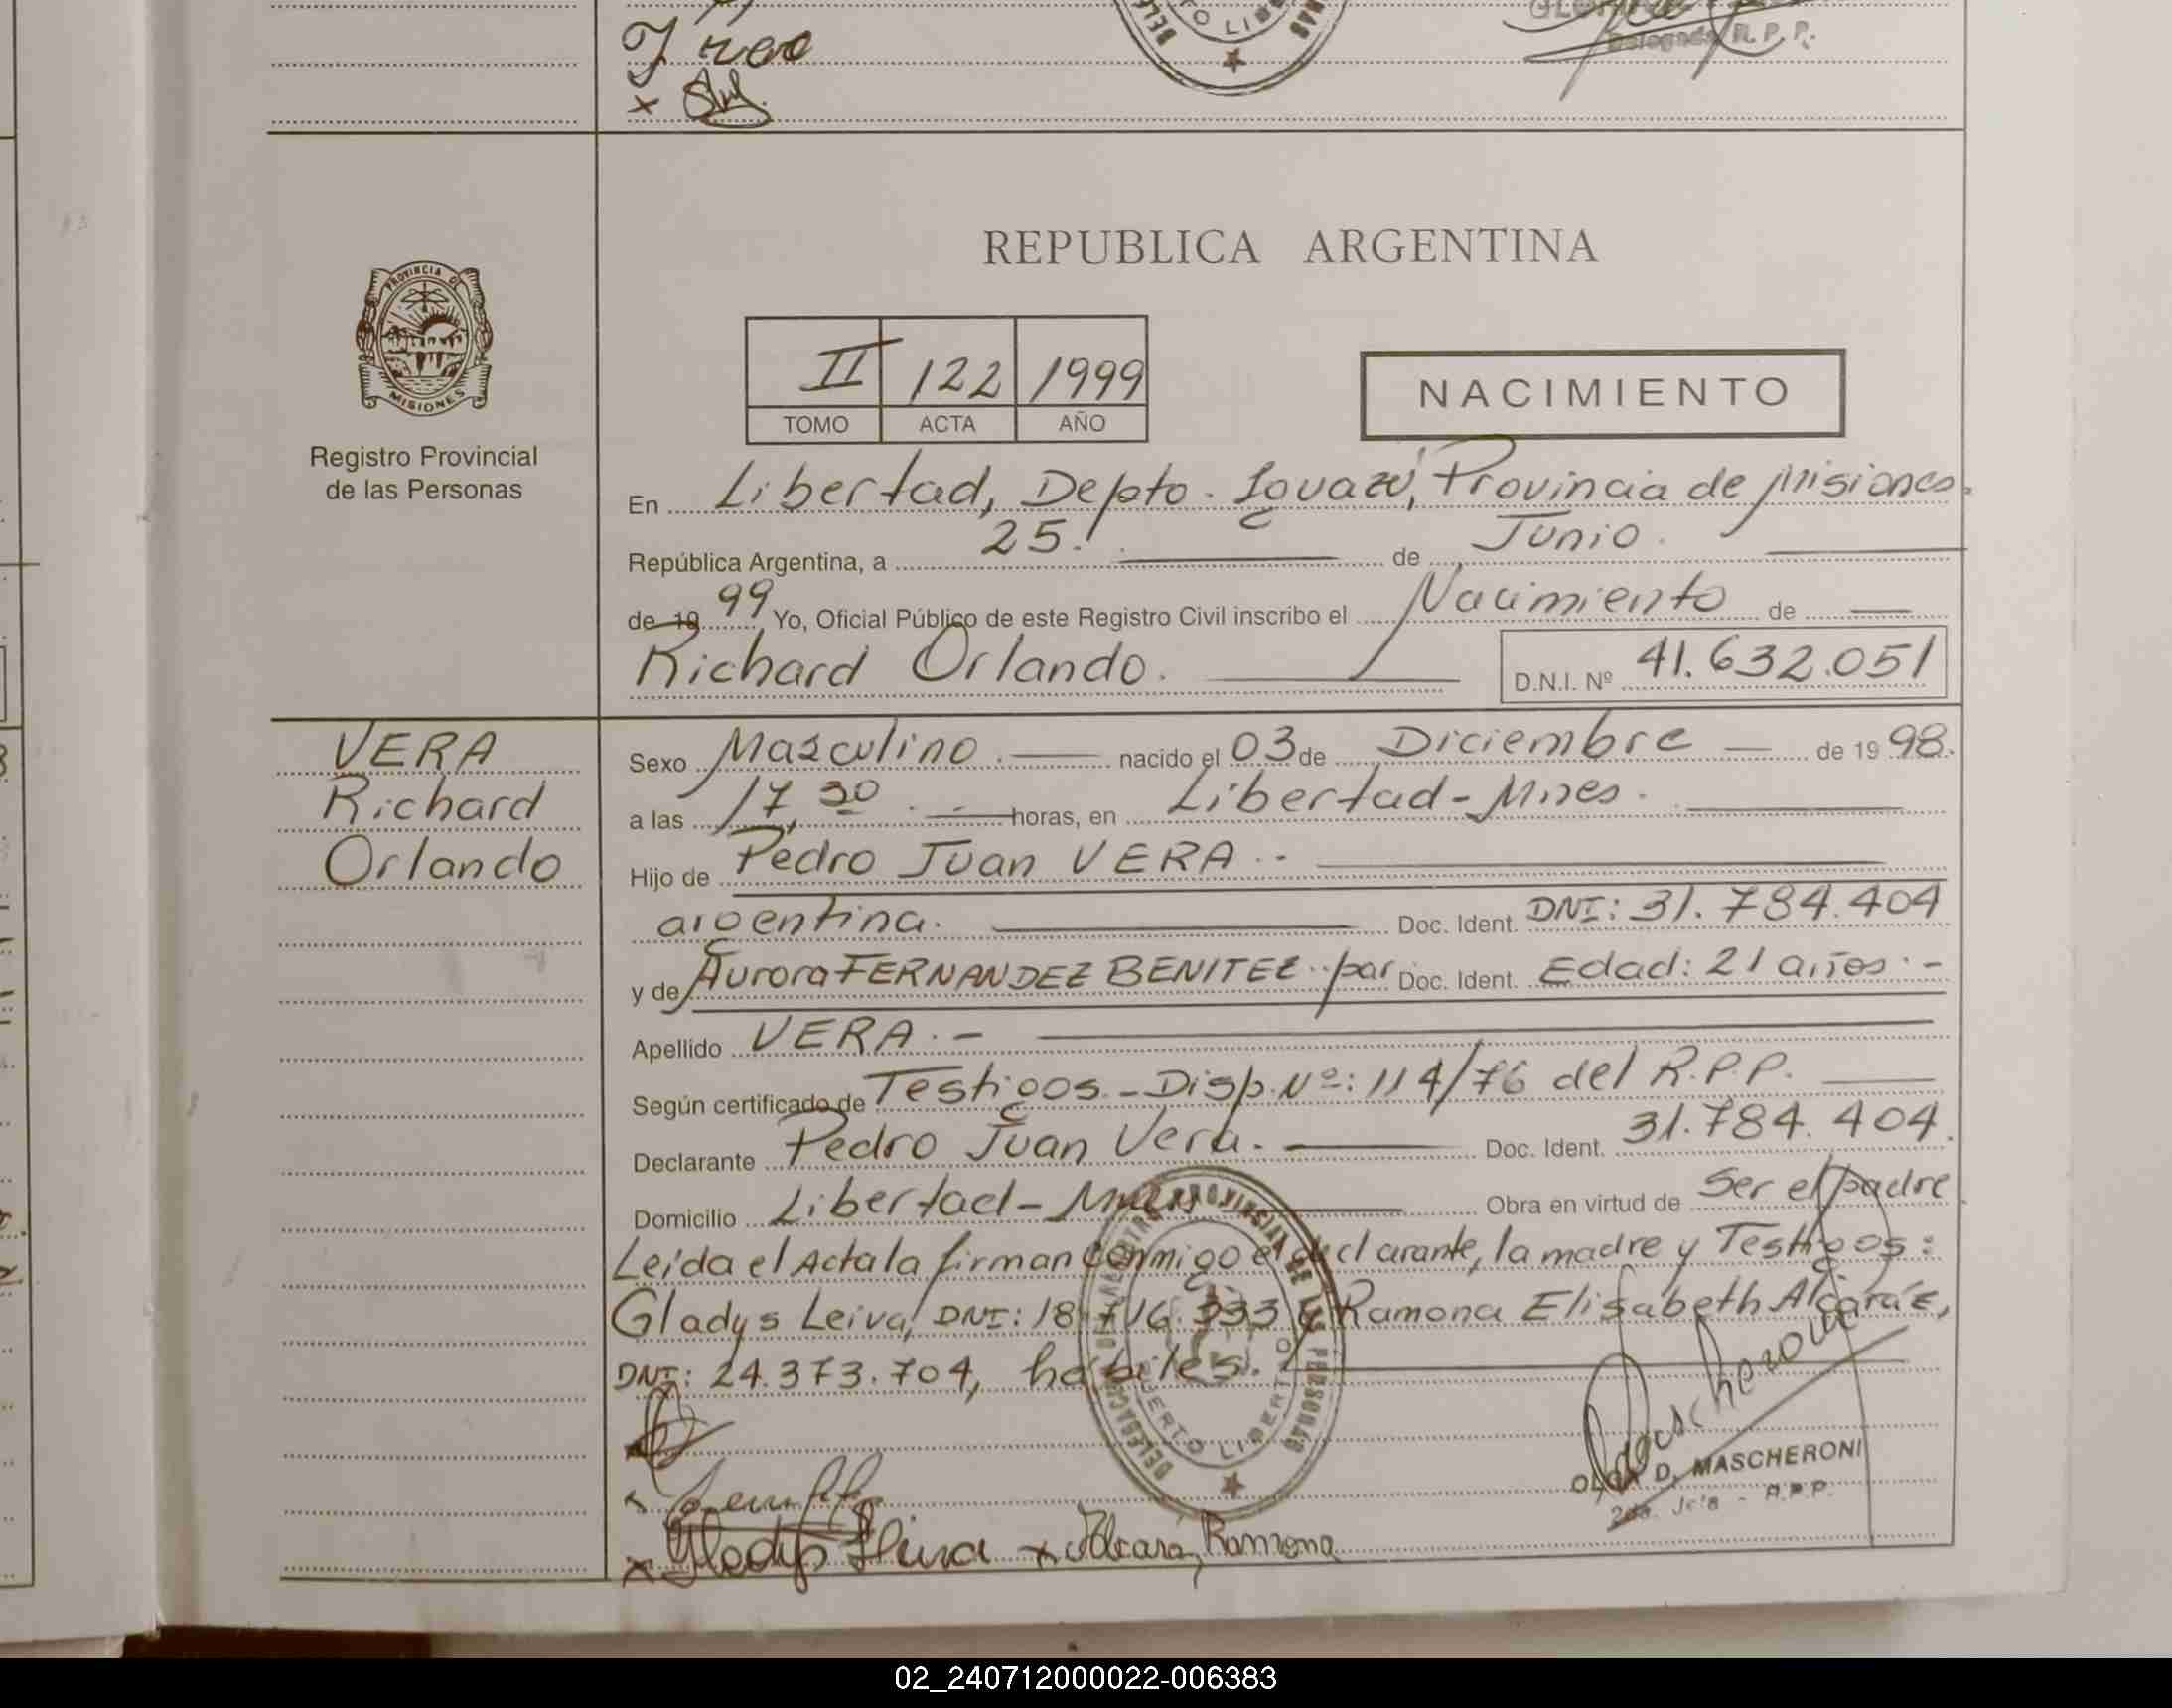 PUERTO LIBERTAD
Delegada R.P.P.
REPUBLICA ARGENTINA
PROVINCIA DE
MISIONES
Registro Provincial
de las Personas
II 122 1999
TOMO ACTA AÑO
NACIMIENTO
En Libertad, Depto. Iguazú, Provincia de Misiones.
República Argentina, a 25. de Junio.
de 19 99 Yo, Oficial Público de este Registro Civil inscribo el Nacimiento de
Richard Orlando. D.N.I. Nº 41.632.051
VERA
Richard
Orlando
Sexo Masculino. nacido el 03 de Diciembre de 19 98.
a las 17,30 horas, en Libertad-Mnes.
Hijo de Pedro Juan VERA.-
argentina. Doc. Ident. DNI: 31.784.404
y de Aurora FERNANDEZ BENITEZ.. par Doc. Ident. Edad: 21 años.-
Apellido VERA.-
Según certificado de Testigos.-Disp.Nº: 114/76 del R.P.P.
Declarante Pedro Juan Vera. Doc. Ident. 31.784.404.
Domicilio Libertad-Mnes Obra en virtud de Ser el padre
Leída el Acta la firman conmigo el declarante, la madre y Testigos:
Gladys Leiva, DNI: 18.716.333 y Ramona Elisabeth Alcaráz,
DNI: 24.373.704, habiles.
DELEGACION REGISTRO PROVINCIAL DE LAS PERSONAS
PUERTO LIBERTAD
OLGA D. MASCHERONI
2da. Jefa - R.P.P.
x Gladys Leiva x Alcará, Ramona
02_240712000022-006383